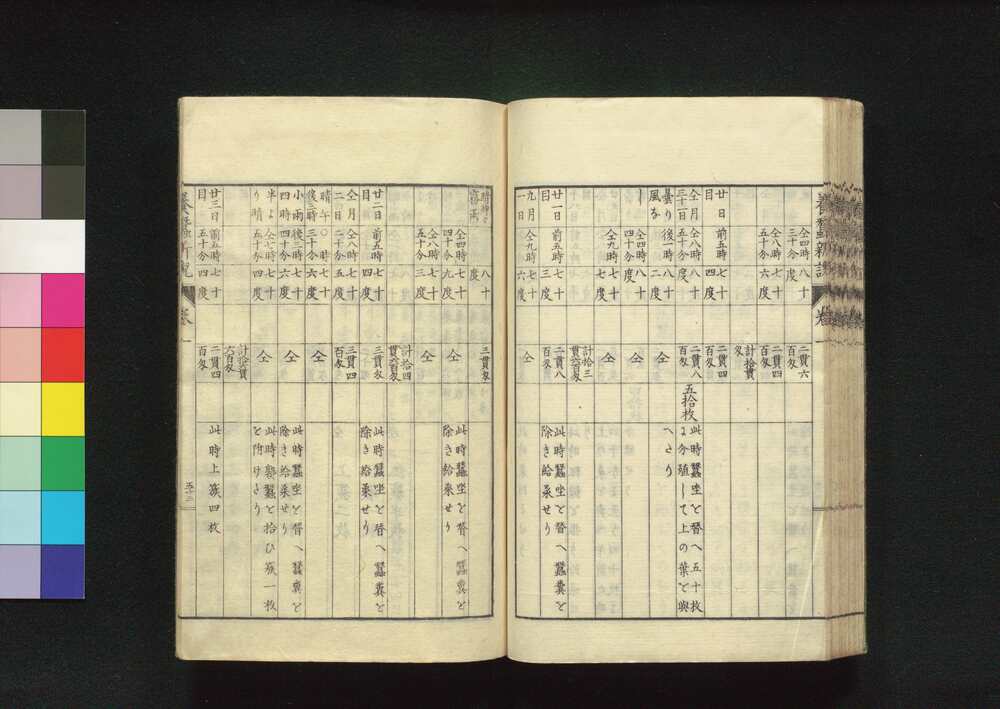 養蠶新説 卷一
仝四時三十分 八十度 二貫六百匁
仝八時五十分 七十六度 二貫四百匁
計拾貫匁
廿日目 前五時 七十四度 二貫四百匁
仝月三十一日 仝八時五十分 七十八度 二貫八百匁 五拾枚 此時蠶坐を替へ五十枚に分殖して上の葉を與へたり
曇り風なし 後一時 八十二度 仝
仝四時 八十度 仝
仝九時 七十七度 仝
計拾三貫六百匁
廿一日目 前五時 七十三度 二貫八百匁 此時蠶坐を替へ蠶糞を除き給桑せり
九月一日 仝九時 七十六度 仝
八十度 三貫匁
仝四時四十分 七十九度 仝 此時蠶坐を替へ蠶糞を除き給桑せり
仝八時五十分 七十三度 仝
計拾四貫六百匁
廿二日目 前五時 七十四度 三貫匁 此時蠶坐を替へ蠶糞を除き給桑せり
仝月二日 仝八時二十分 七十五度 三貫四百匁
晴午後三時 〇時三十分 七十六度 仝
小雨四時 後三時四十分 七十六度 仝 此時蠶坐を替へ蠶糞を除き給桑せり
半より晴 仝七時五十分 七十四度 仝 此時熟蠶を拾ひ蔟一枚を附けたり
計拾六貫六百匁
廿三日目 前五時五十分 七十四度 二貫四百匁 此時上蔟四枚
養蠶新説 卷一 五十三